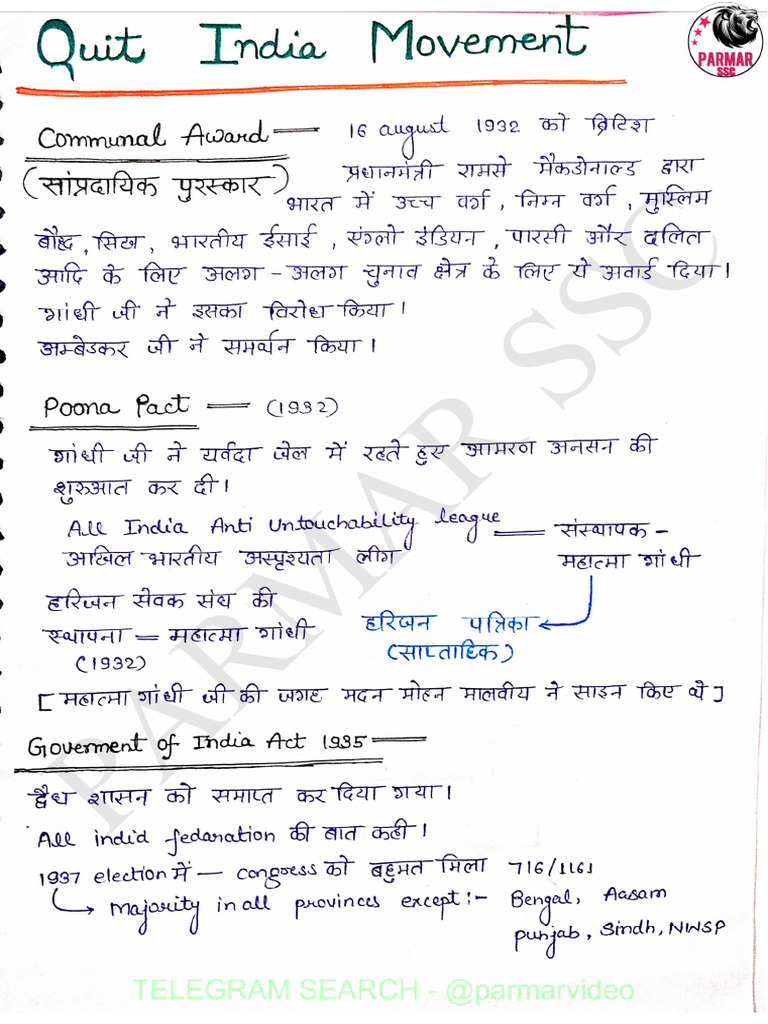 Quit India Movement
PARMAR
SSC
Communal Award — 16 august 1932 को ब्रिटिश
(सांप्रदायिक पुरस्कार) प्रधानमंत्री रामसे मैकडोनाल्ड द्वारा
भारत में उच्च वर्ग, निम्न वर्ग, मुस्लिम
बौद्ध, सिख, भारतीय ईसाई, एंग्लो इंडियन, पारसी और दलित
आदि के लिए अलग-अलग चुनाव क्षेत्र के लिए ये अवार्ड दिया।
गांधी जी ने इसका विरोध किया।
अम्बेडकर जी ने समर्थन किया।
Poona Pact — (1932)
गांधी जी ने यर्वदा जेल में रहते हुए आमरण अनसन की
शुरुआत कर दी।
All India Anti Untouchability league = संस्थापक -
अखिल भारतीय अस्पृश्यता लीग महात्मा गांधी
हरिजन सेवक संघ की
स्थापना = महात्मा गांधी हरिजन पत्रिका ←
(1932) (साप्ताहिक)
[महात्मा गांधी जी की जगह मदन मोहन मालवीय ने साइन किए थे]
Goverment of India Act 1935 =
द्वैध शासन को समाप्त कर दिया गया।
All indid fedaration की बात कही।
1937 election में — congress को बहुमत मिला 716/1161
→ Majority in all provinces except :- Bengal, Aasam
punjab, Sindh, NWSP
PARMAR SSC
TELEGRAM SEARCH - @parmarvideo